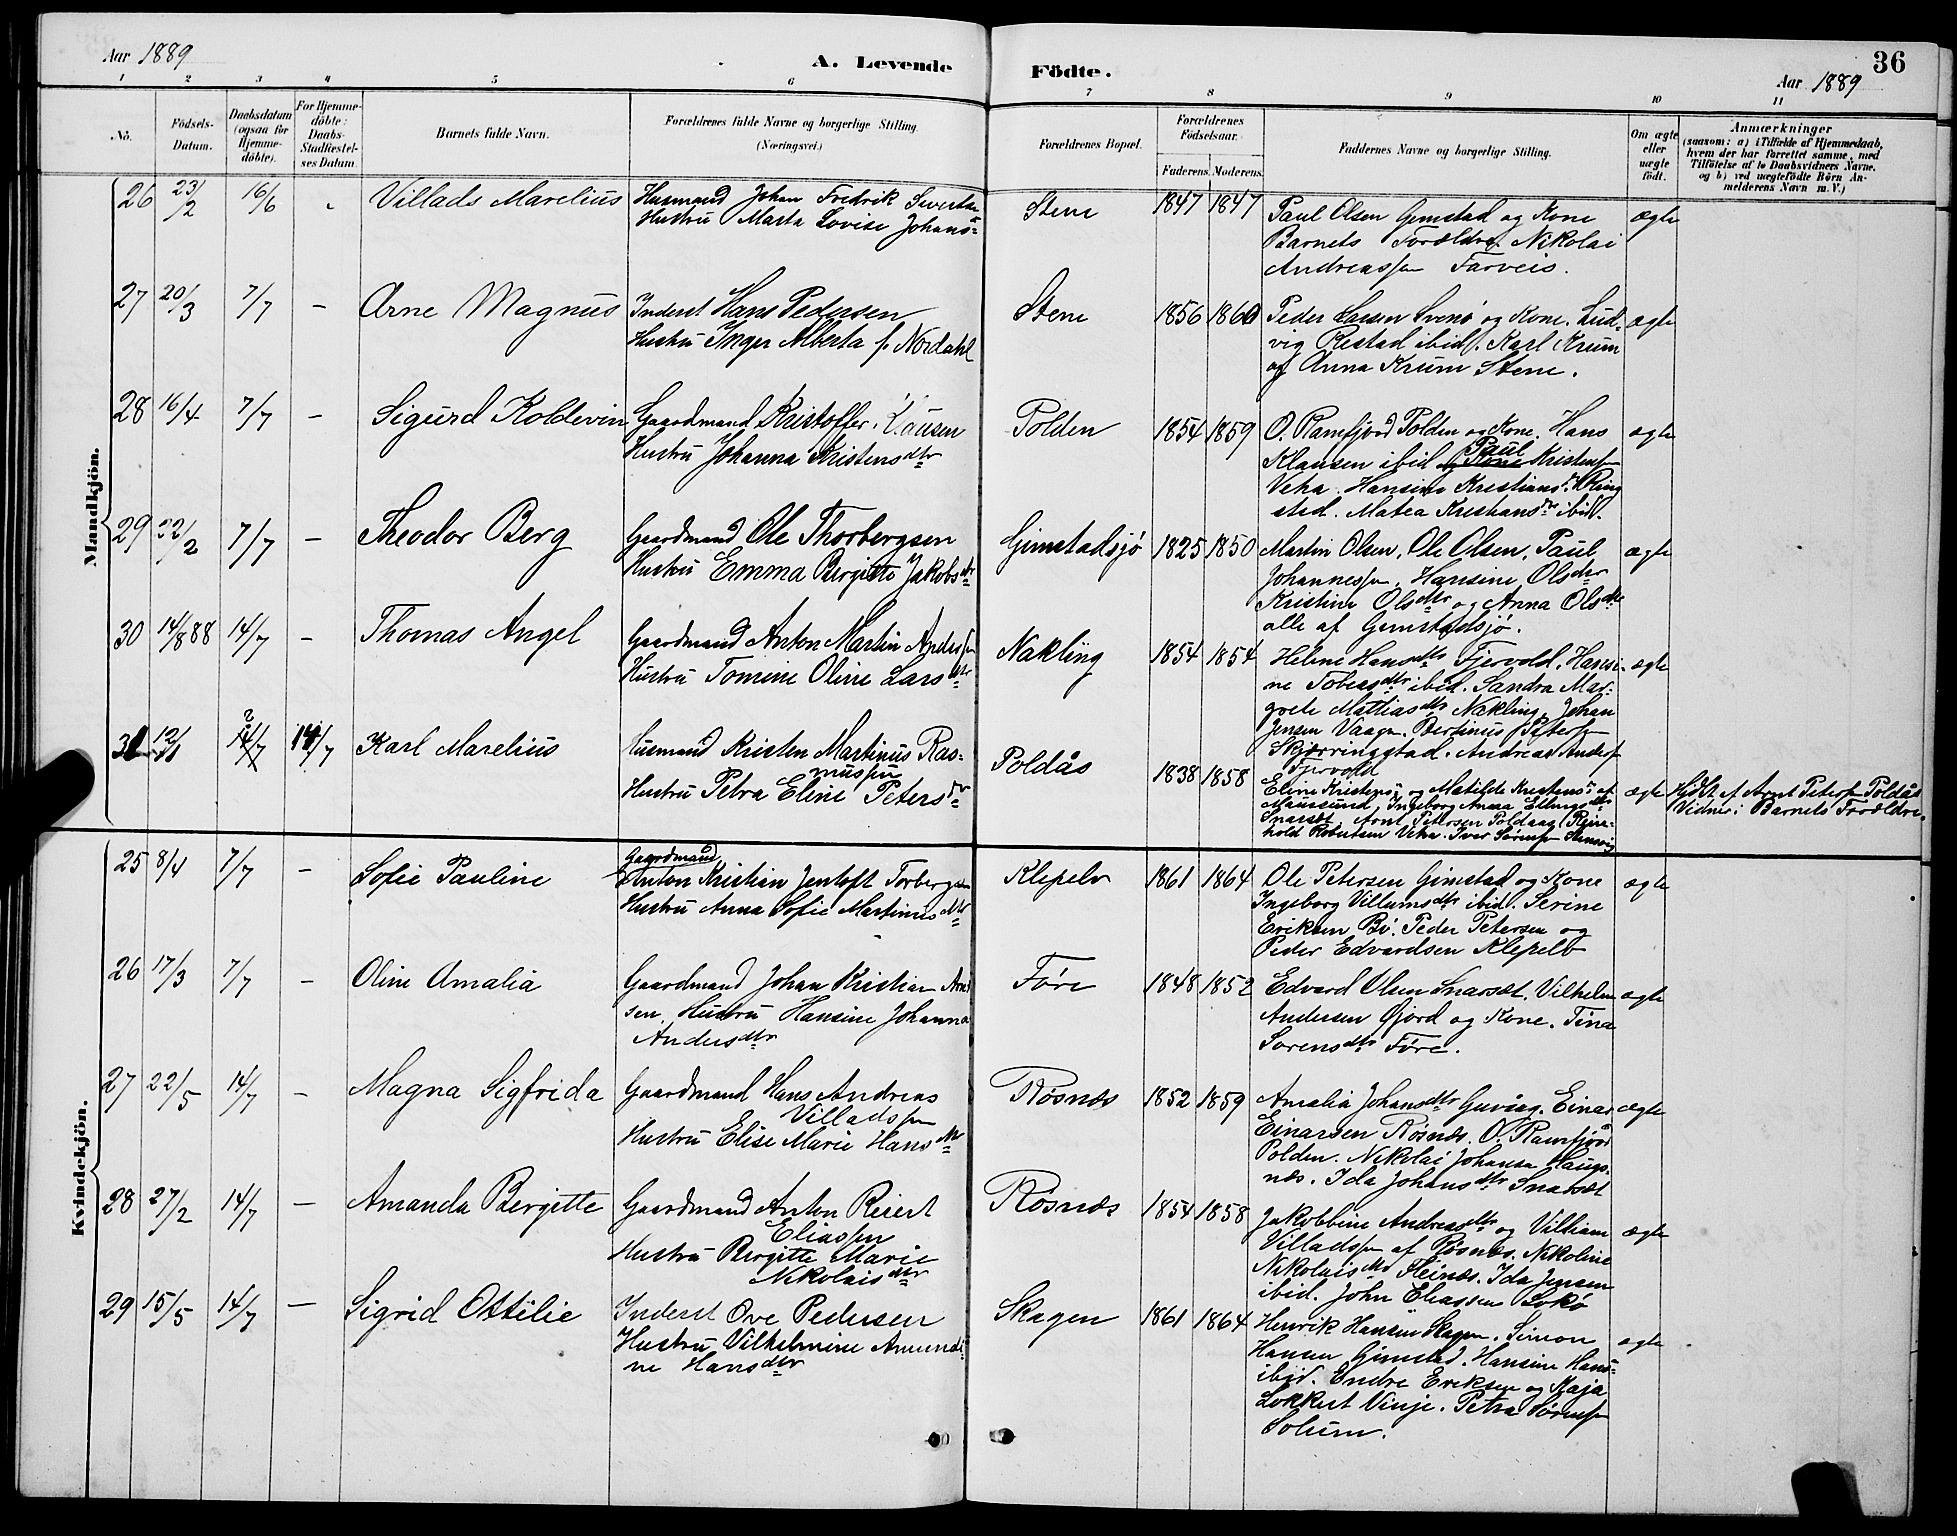 Aar 1889
A. Levende Födte.
36
Aar 1889
1 2 3 4 5 6 7 8 9 10 11
No.
Födsels-Datum.
Daabsdatum (ogsaa for Hjemme-döbte).
For Hjemme-döbte: Daabs-Stadfæstel-ses Datum.
Barnets fulde Navn.
Forældrenes fulde Navne og borgerlige Stilling. (Næringsvei.)
Forældrenes Bopæl.
Forældrenes Födselsaar.
Faderens. Moderens.
Faddernes Navne og borgerlige Stilling.
Om ægte eller uægte födt.
Anmærkninger
(saasom: a) i Tilfælde af Hjemmedaab,
hvem der har forrettet samme, med
Tilföielse af to Daabsvidners Navne.
og b) ved uægtefödte Börn An-
melderens Navn m. V.)
Mandkjön.
26 23/2 16/6 Villads Marelius
Husmand Johan Fredrik Sivertsen
Hustru Marta Lovise Johans
Stene 1847 1847
Paul Olsen Gimstad og Kone
Barnets Forældre. Nikolai
Andreassen Farveis.
ægte
27 20/3 7/7 – Arne Magnus
Inderst Hans Pedersen
Hustru Inger Alberta f. Nordahl
Stene 1856 1860
Peder Larsen Svenö og Kone. Lud-
vig Restad ibid. Karl Krum
og Anna Krum Stene.
ægte
28 16/4 7/7 – Sigurd Koldevin
Gaardmand Kristoffer Klausen
Hustru Johanna Kristensdtr
Polden 1854 1859
O. Ramfjord Polden og Kone. Hans
Klausen ibid Paul Kristens
Veha. Hansine Kristiansd. Ring
sted. Matea Kristiansdtr ibid.
ægte
29 22/2 7/7 – Theodor Berg
Gaardmand Ole Thorbergsen
Hustru Emma Bergitte Jakobsdtr
Gimstadsjö 1825 1850
Martin Olsen, Ole Olsen, Paul
Johannessen, Hansine Olsdtr
Kristine Olsdtr og Anna Olsdtr
alle af Gimstadsjö.
ægte
30 14/8 88 14/7 – Thomas Angel
Gaardmand Anton Martin Anderssen
Hustru Tomine Oline Larsdtr
Nakling 1854 1854
Helene Hansdtr Fjervold. Hansi-
ne Tobiasdtr ibid. Sandra Mar-
grete Mattiasdtr Nakling, Johan
Jensen Vaagen. Bertinus Peters
Skjærringstad. Andreas Anders
Fjervold
ægte
31 12/11 14/7 Karl Marelius
Husmand Kristen Martinus Ras-
mussen
Hustru Petra Eline Petersdr
Poldås 1838 1858
Eline Kristens og Matilde Kristens af
Maursund, Ingeborg Anna Ellingsdtr
Snarset, Arnt Pettersen Poldaas, Rein-
hold Robertsen Veha. Iver Sörens Steinvig
ægte
Hjdbt af Arnt Peters Poldås
Vidner: Barnets Forældre.
Kvindekjön.
25 8/4 7/7 – Sofie Pauline
Gaardmand
Anton Kristian Jentoft Torbergsen
Hustru Anna Sofie Martinusdtr
Klepelv 1861 1864
Ole Petersen Gimstad og Kone
Ingeborg Villumsdtr ibid. Serine
Eriksen Bö. Peder Petersen og
Peder Edvardsen Klepelv
ægte
26 17/3 7/7 – Oline Amalia
Gaardmand Johan Kristian Arnt
sen, Hustru Hansine Johanna
Andersdtr
Före 1848 1852
Edvard Olsen Snarset. Vilhelm
Andersen Gjord og Kone. Tina
Sorensdtr Före.
ægte
27 22/5 14/7 – Magna Sigfrida
Gaardmand Hans Andreas
Villadssen
Hustru Elise Marie Hansdtr
Rösnæs 1852 1859
Amalia Johansdtr Guvaag. Einar
Einarsen Rösnæs. O. Ramfjord
Polden. Nikolai Johansen Haugs-
næs. Ida Johansdtr Snarset
ægte
28 27/2 14/7 – Amanda Bergitte
Gaardmand Anton Reiert
Eliassen
Hustru Bergitte Marie
Nikolaisdtr
Rösnæs 1854 1858
Jakobbine Andreasdtr og Villiam
Villadssen af Rösnæs. Nikoline
Nikolaisdtr Steinæs. Ida Jensen
ibid. John Eliassen Sokö
ægte
29 15/5 14/7 – Sigrid Ottilie
Inderst Ove Pedersen
Hustru Vilhelmine Amundi-
ne Hansdtr
Skagen 1861 1864
Henrik Hansen Skagen. Simon
Hansen Gimstad. Hansine Hans
ibid. Endre Eriksen og Kaja
Lokkert Vinje. Petra Sörens
Solum.
ægte